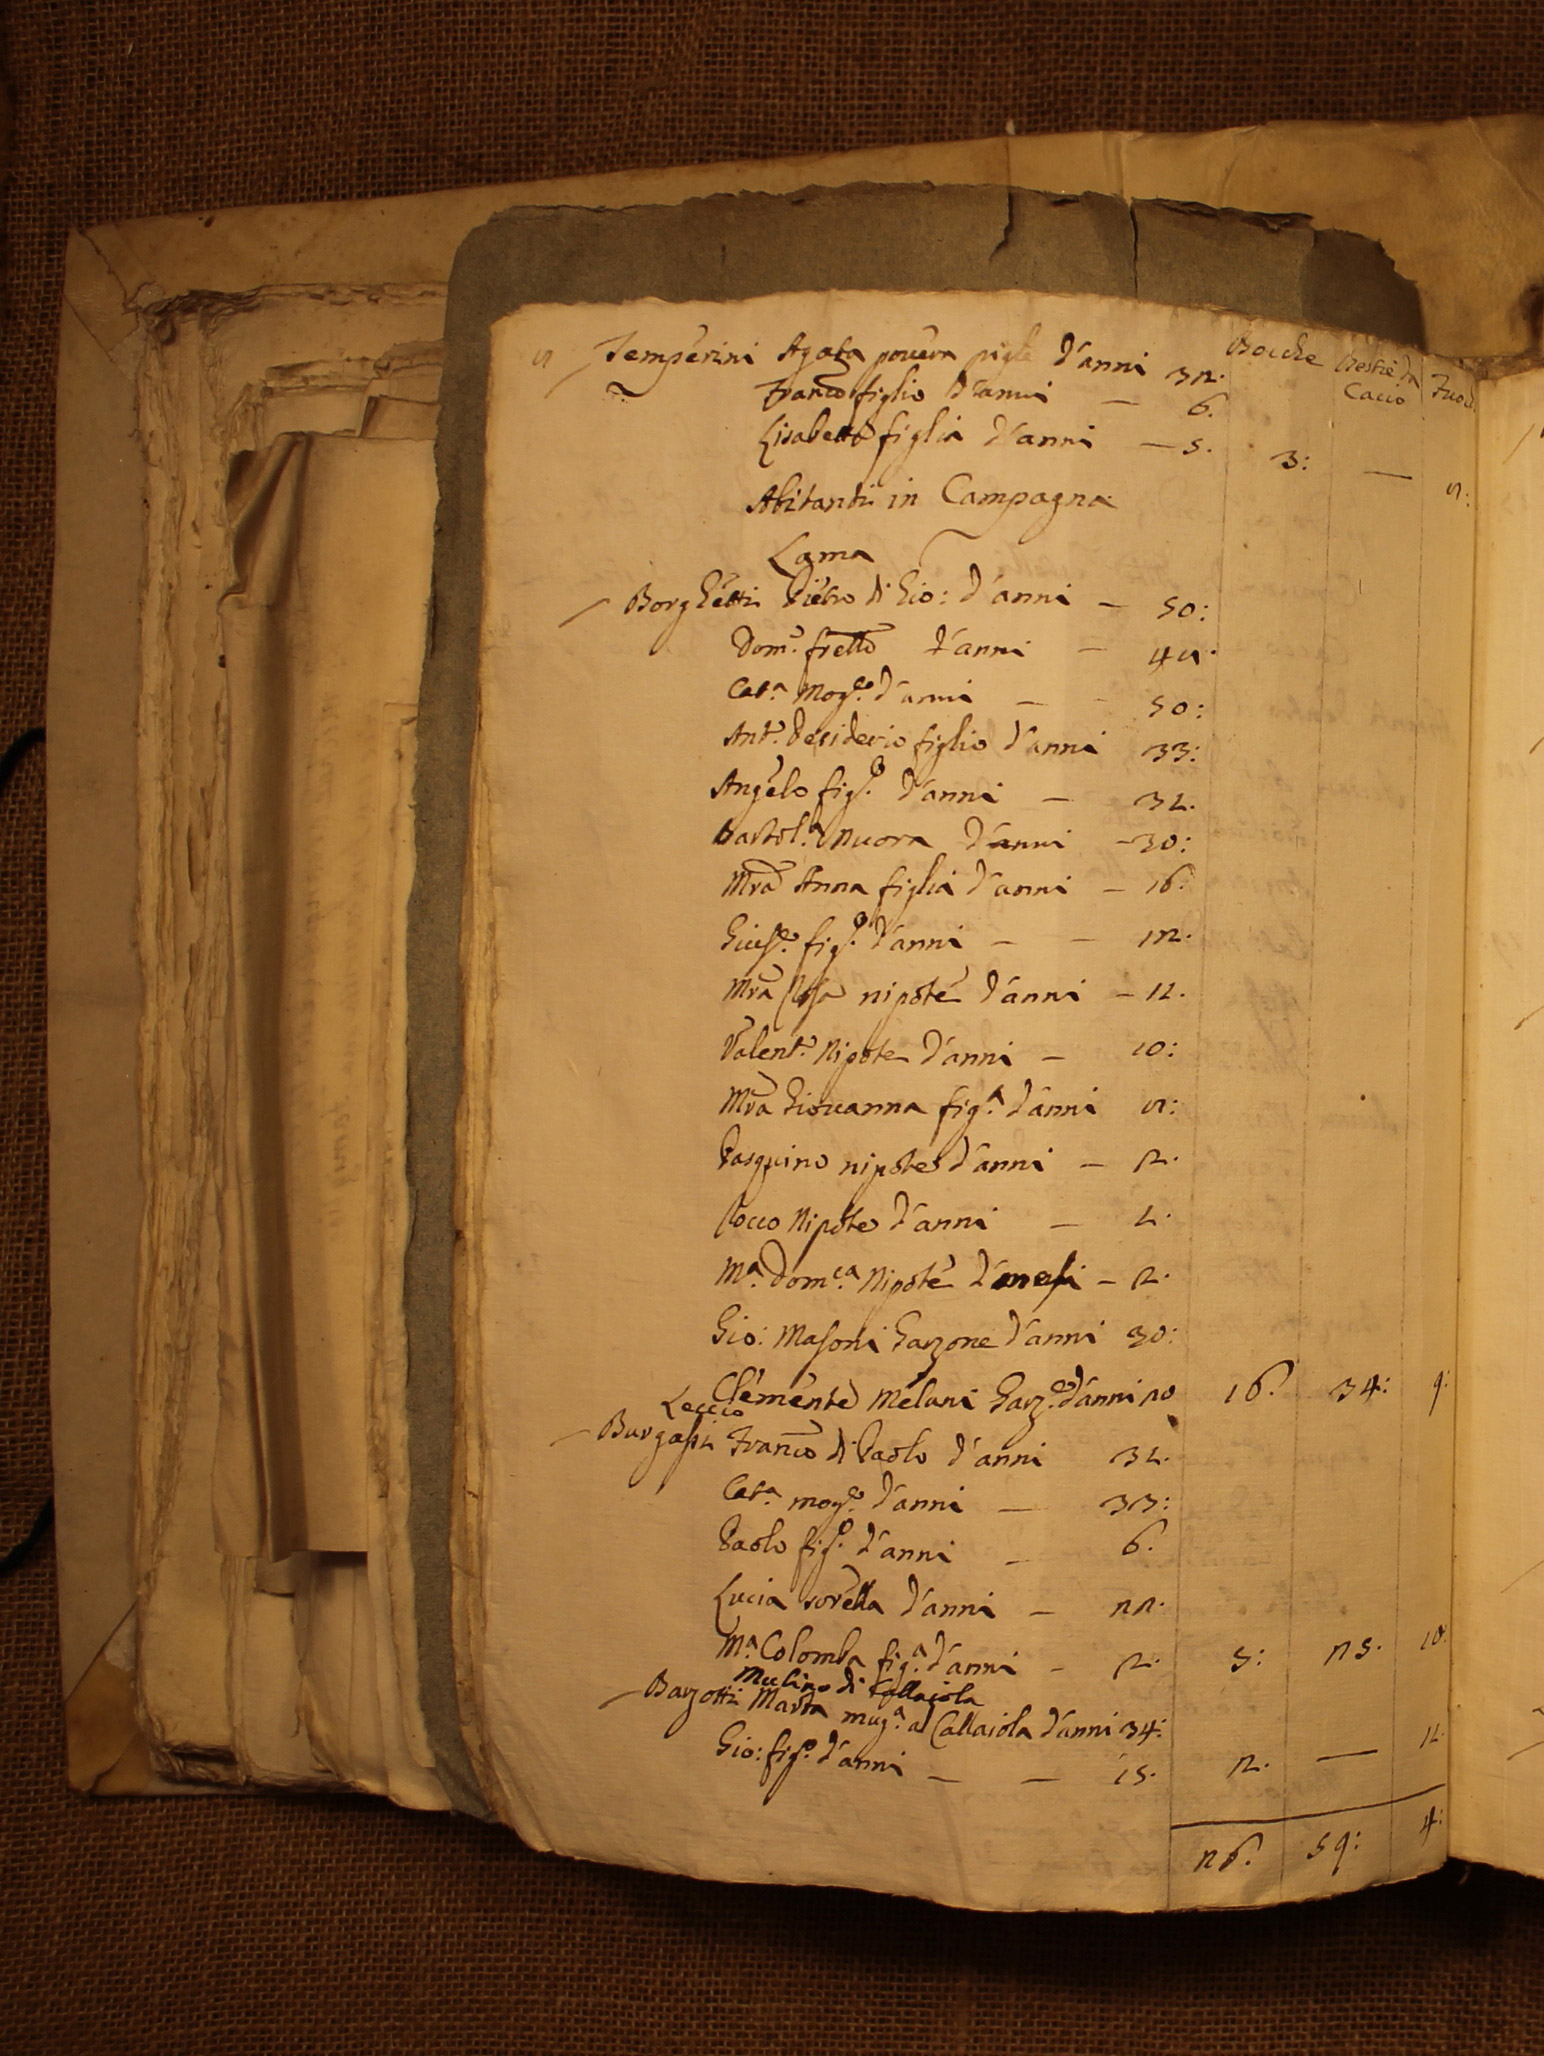 8 Temperini Agata povera pigle d'anni 32. Bocche Bestie da Cacio Fuo
Franco figlio d'anni — 6.
Lisabetta figlia d'anni — 5. 3: — 8:
Abitanti in Campagna
Lama
Borghetti Pietro di Gio: d'anni — 50:
Dom.o frello d'anni — 48.
Cat.a Mog.e d'anni — - 50:
Ant.o Desiderio figlio d'anni 33:
Angelo fig.o d'anni — 31.
Bartol.a Nuora d'anni - 30:
Mra Anna figlia d'anni — 16.
Gius.e fig.o d'anni — — 12.
Mra Rosa nipote d'anni — 11.
Valent.o Nipote d'anni — 10:
Mra Giovanna fig.a d'anni 8:
Pasquino nipote d'anni — 2.
Rocco Nipote d'anni — 1.
M.a Dom.ca Nipote d'mesi — 2.
Gio: Masoni Garzone d'anni 30:
Clemente Melani Garz.e d'anni 20 16. 34: 9:
Leccio
Burgassi Franco di Paolo d'anni 31.
Cat.a mog.e d'anni — 33:
Paolo fig.o d'anni — 6.
Lucia sorella d'anni — 22.
M.a Colomba fig.a d'anni - 2. 5: 25. 10:
Mulino di Callaiola
Barzotti Marta mug.a al Callaiola d'anni 34:
Gio: fig.o d'anni — — 15. 2. — 11.
26. 59: 4: